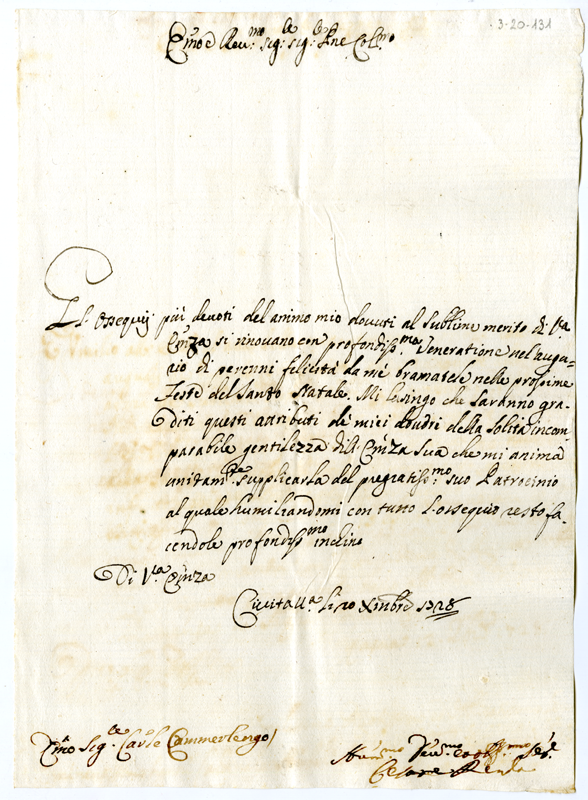 3-20-131
Emo e Reu:mo sig:le sig:le Pne Col:mo
Gl: Ossequij più devoti del animo mio douuti al sublime merito di V:a
Emza si rinouano con profondiss:ma Veneratione nel augu
rio di perenni felicità da mè bramatele nelle prossime
Feste del Santo Natale. Mi lusingo che saranno gra
diti questi attributi de miei doueri della solita incom
parabile gentilezza dell'Emza Sua che mi anima
unitam:te supplicarla del pregiatiss:mo suo Patrocinio
al quale humiliandomi con tutto l'ossequio resto fa
cendole profondiss:mo inchino
Di V:a Emza
Ciuitall:a li 20 Xmbre 1728
Emo Sig:le Car:le Cammerlengo
Hum:mo Deu:mo et obblg:mo Ser:
Cesare